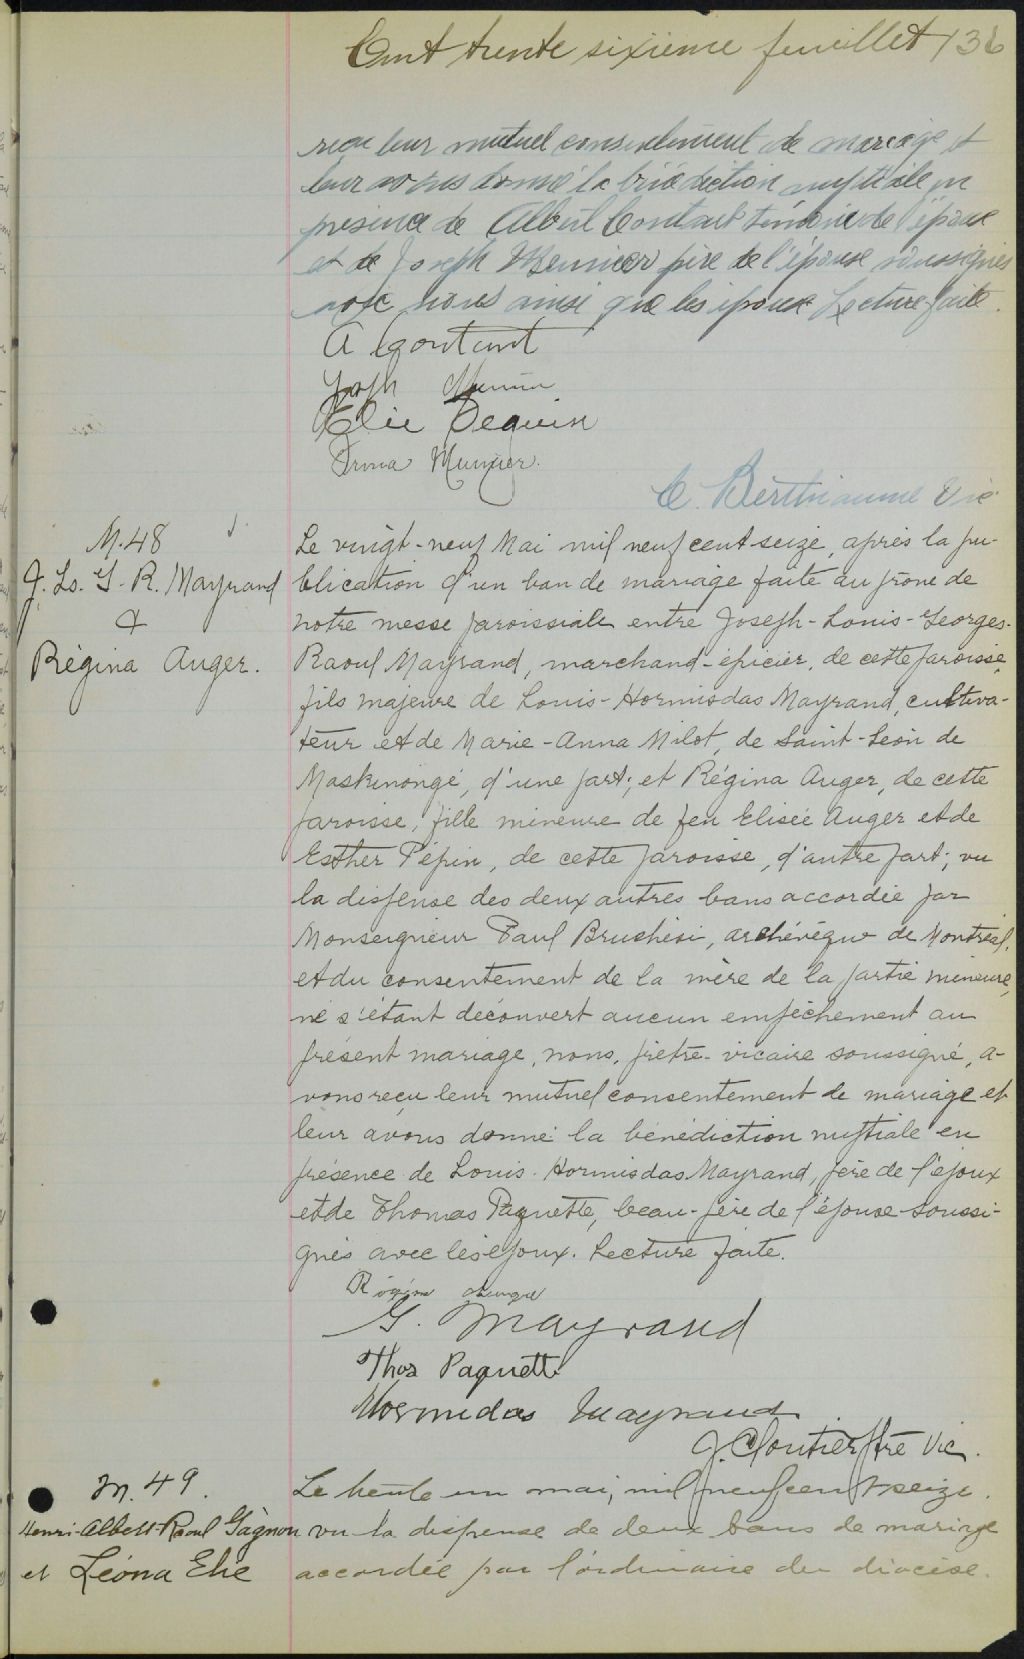 Cent trente sixième feuillet 136
reçu leur mutuel consentement de mariage et
leur avons donné la bénédiction nuptiale en
présence de Albert Coutant témoin de l'épouse
et de Joseph Meunier père de l'épouse soussignés
avec nous ainsi que les époux Lecture faite.
A Coutant
Josph
Elie Dequin
Irma Munier.
C. Berthiaume Vic
M. 48
J. Ls. G. R. Mayrand
&
Régina Auger.
Le vingt-neuf Mai mil neuf cent seize, après la pu-
blication d'un ban de mariage faite au prône de
notre messe paroissiale entre Joseph-Louis-Georges-
Raoul Mayrand, marchand-épicier, de cette paroisse,
fils majeure de Louis-Hormisdas Mayrand, cultiva-
teur et de Marie-Anna Milot, de Saint-Léon de
Maskinongé, d'une part; et Régina Auger, de cette
paroisse, fille mineure de feu Elisée Auger et de
Esther Pépin, de cette paroisse, d'autre part; vu
la dispense des deux autres bans accordée par
Monseigneur Paul Bruchési, archévêque de Montréal,
et du consentement de la mère de la partie mineure,
ne s'étant découvert aucun empêchement au
présent mariage, nous, prêtre-vicaire soussigné, a-
vons reçu leur mutuel consentement de mariage et
leur avons donné la bénédiction nuptiale en
présence de Louis-Hormisdas Mayrand, père de l'époux
et de Thomas Paquette, beau-père de l'épouse soussi-
gnés avec les époux. Lecture faite.
Régina
G. Mayrand
Thos Paquette
Hormidas Mayrand
J. Cloutier ptre Vic.
M. 49.
Henri-Albert-Raoul Gagnon
et Léona Elie
Le trente un mai, mil neuf cent seize.
vu la dispense de deux bans de mariage
accordée par l'ordinaire du diocèse.